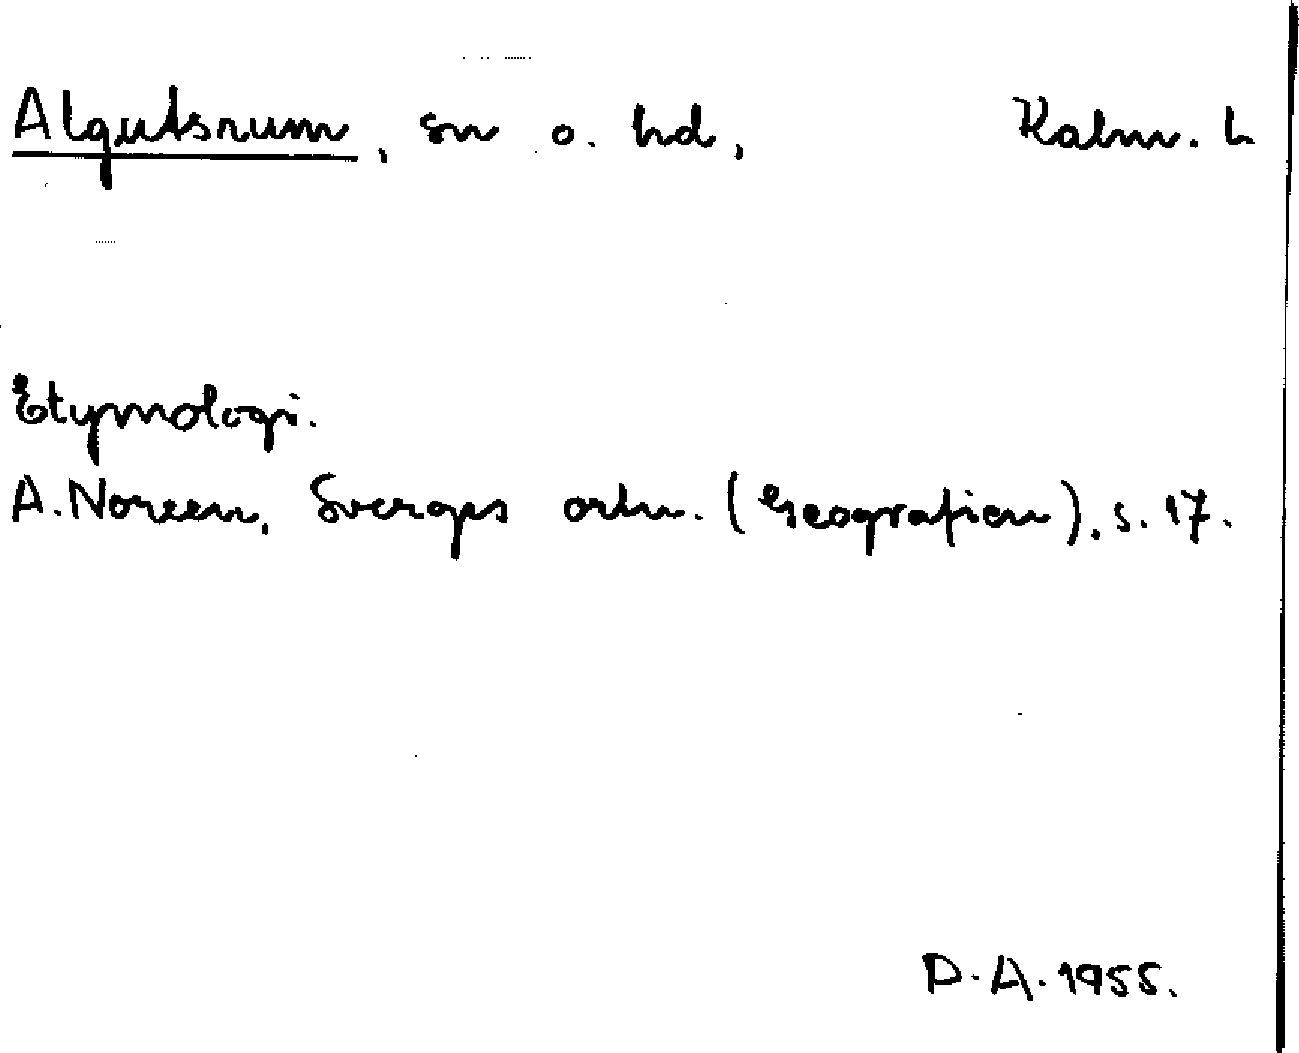 Algutsrum, sn o. hd, Kalm. L
Etymologi.
A. Noreen, Sveriges ortn. (Geografien), s. 17.
D. A. 1955.